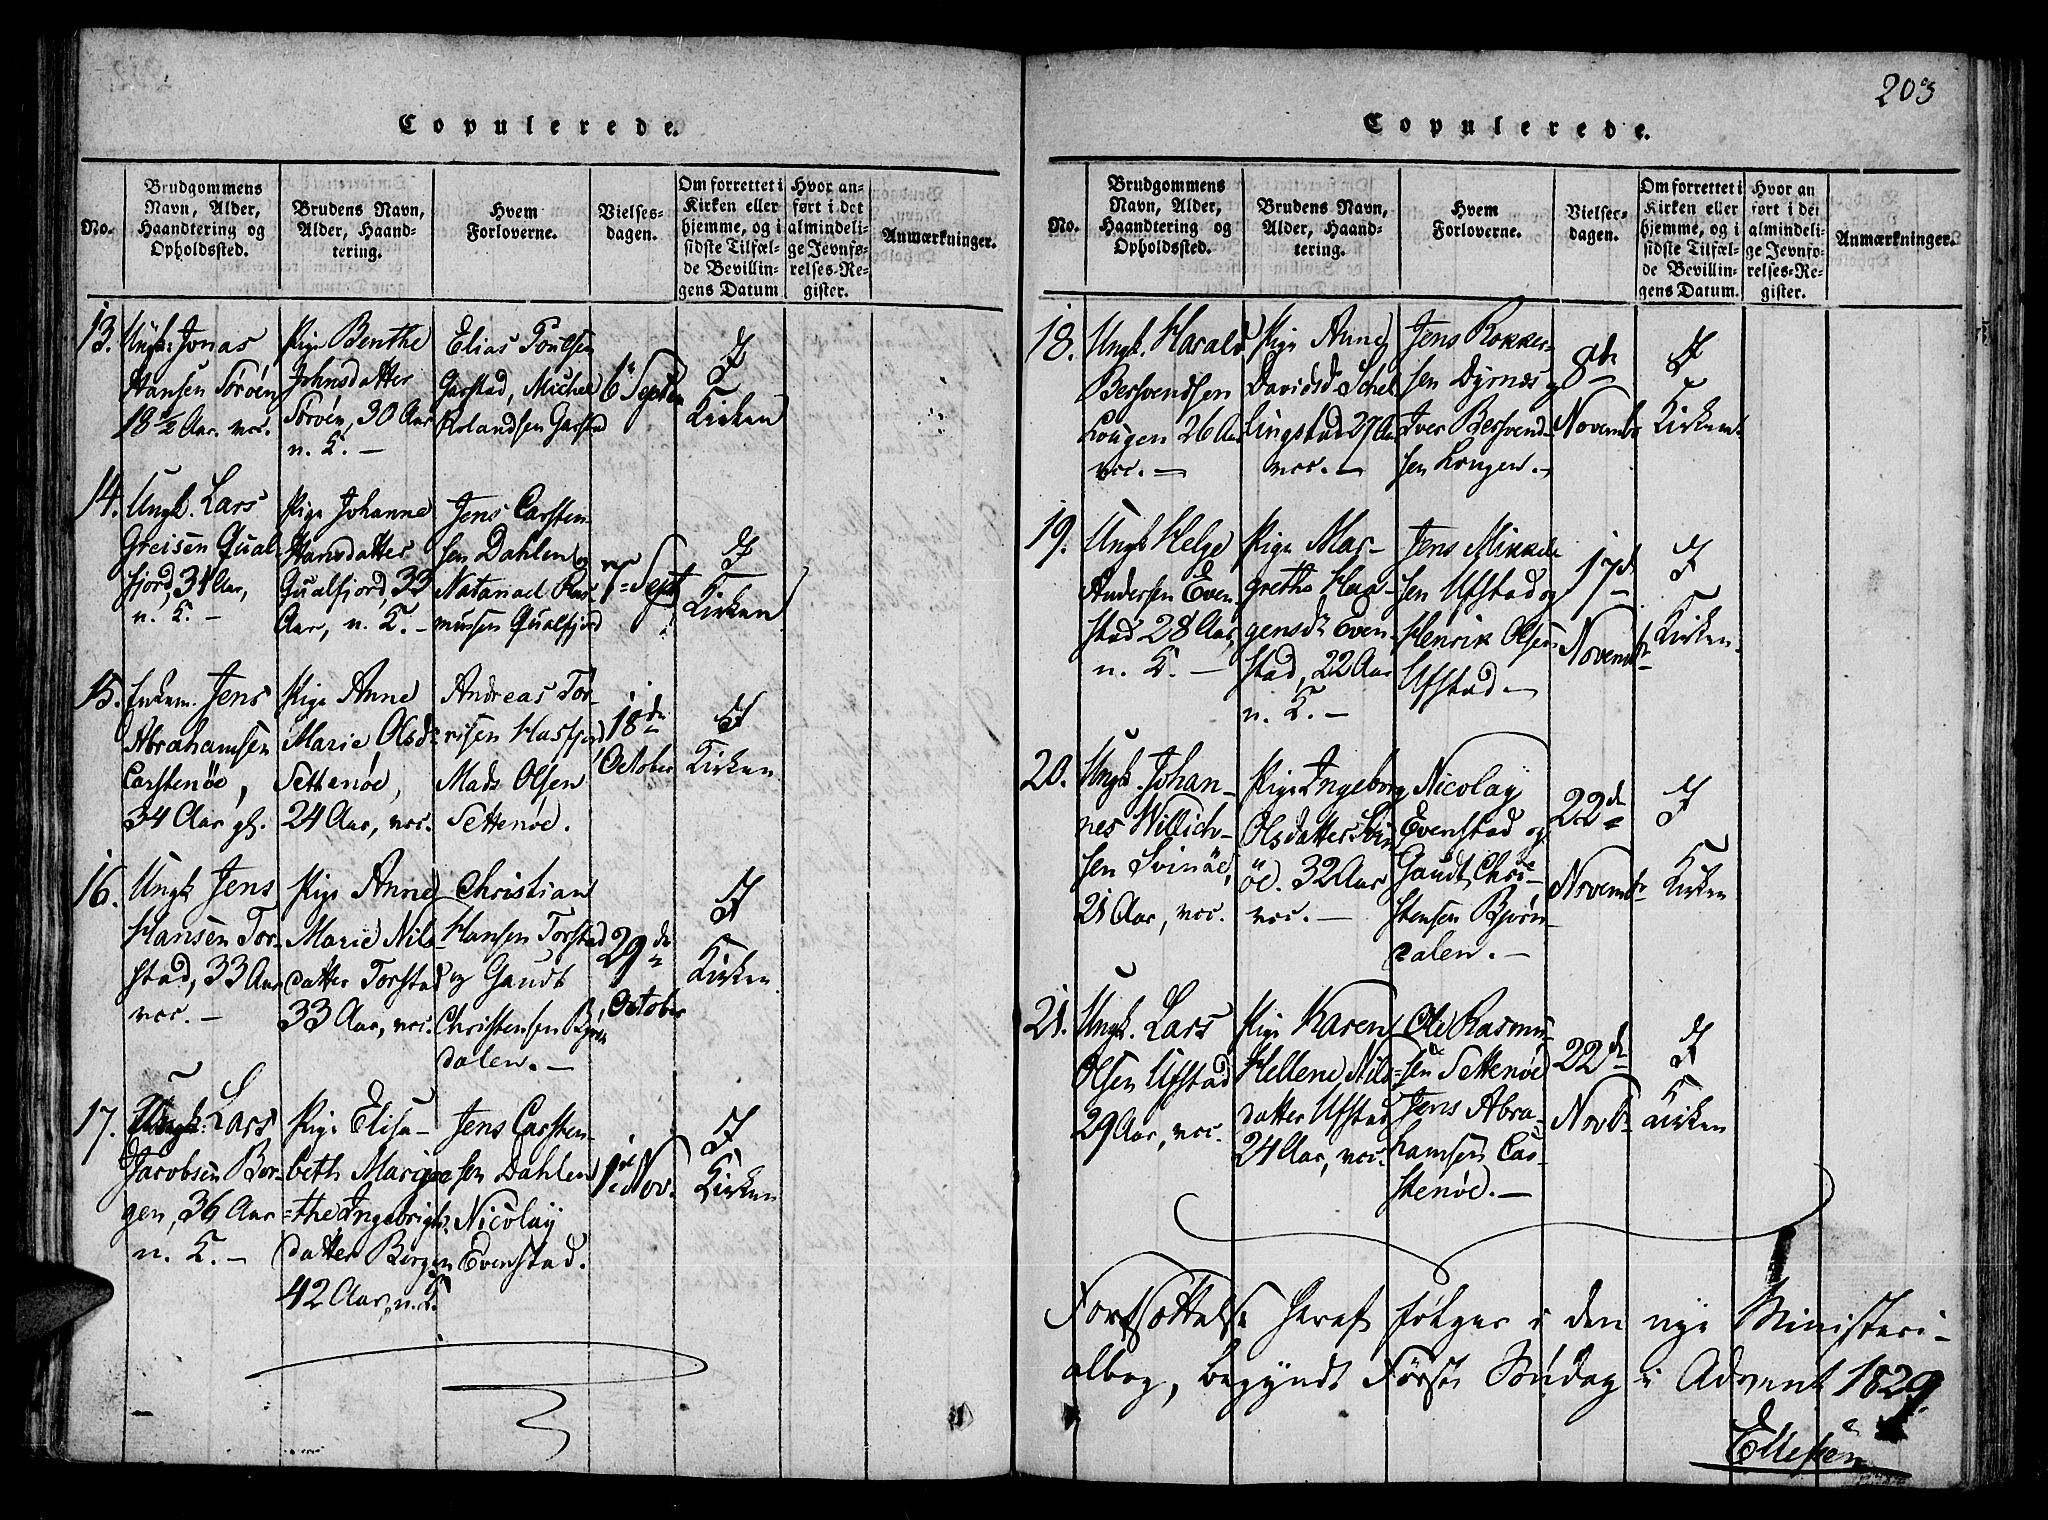 Copulerede.
No.
Brudgommens
Navn, Alder,
Haandtering og
Opholdssted.
Brudens Navn,
Alder, Haand-
tering.
Hvem
Forloverne.
Vielses-
dagen.
Om forrettet i
Kirken eller
hjemme, og i
sidste Tilfæl-
de Bevillin-
gens Datum
Hvor an-
ført i det
almindeli-
ge Jevnfø-
relses-Re-
gister.
Anmærkninger.
13.
Ungk. Jonas
Hansen Sørøen
18 1/2 Aar. vac.
Pige Benthe
Johnsdatter
Sørøen, 30 Aar
n. K. -
Elias Poulsen
Garstad, Michel
Rolandsen Garstad
6 Septbr
I
Kirken
14.
Ungk. Lars
Greisen Qual-
fjord, 31 Aar,
n. K. -
Pige Johanne
Hansdatter
Qualfjord, 33
Aar, n. K. -
Jens Carsten-
sen Dahlen og
Natanael Ras-
mussen Qualfjord
Sept
I
Kirken
15.
Enkem. Jens
Abrahamsen
Carstenöe,
34 Aar gl.
Pige Anne
Marie Olsdr
Settenøe,
24 Aar, vac.
Andreas Tor-
risen Hasfjord
Mads Olsen
Settenøe.
18de
October
I
Kirken
16.
Ungk Jens
Hansen Tor-
stad, 33 Aar
vac. -
Pige Anne
Marie Nils-
datter Torstad
33 Aar, vac.
Christian
Hansen Torstad
og Gaudt
Christensen Bjørn
dalen. -
29de
October
I
Kirken
17.
Ungk. Lars
Jacobsen Ber-
gen, 36 Aar
n. K. -
Pige Elisa-
beth Margre
=the Ingebrigts
datter Bergen
42 Aar, n. K.
Jens Carsten-
sen Dahlen
Nicolay
Evenstad.
1ste Nov.
I
Kirken
203
Copulerede.
No.
Brudgommens
Navn, Alder,
Haandtering og
Opholdssted.
Brudens Navn,
Alder, Haand-
tering.
Hvem
Forloverne.
Vielses-
dagen.
Om forrettet i
Kirken eller
hjemme, og i
sidste Tilfæl-
de Bevillin-
gens Datum.
Hvor an
ført i det
almindeli-
ge Jevnfø-
relses-Re-
gister.
Anmærkninger.
18.
Ungk. Harald
Bersvendsen
Lougen 26 Aar
vac. -
Pige Anne
Davidsdr Schel
lingstad 29 Aar
vac. -
Jens Rokker-
sen Dyrnæs og
Iver Bersvend-
sen Lougen. -
8de
Novembr
I
Kirken.
19.
Ungk Helge
Andersen Even
stad 28 Aar,
n. K. -
Pige Mar-
grethe Haa-
gensdr Even-
stad, 22 Aar
n. K. -
Jens Mikkel
sen Ufstad og
Henrik Olsen
Ufstad -
17de
Novembr
I
Kirken.
20.
Ungk. Johan-
nes Willich-
sen Svinöe,
21 Aar, vac.
Pige Ingeborg
Olsdatter Svin
öe. 32 Aar
vac. -
Nicolay
Evenstad og
Gaudt Chri-
stensen Bjørn-
dalen. -
22de
Novembr
I
Kirken
21.
Ungk. Lars
Olsen Ufstad
29 Aar, vac.
Pige Karen
Hellene Nils-
datter Ufstad
24 Aar, vac.
Ole Rasmus-
sen Settenøe
Jens Abra-
hamsen Car-
stenöe. -
22de
Novbr
I
Kirken
Fortsættelse heraf følger i den nye Ministeri-
albog, begyndt Første Søndag i Advent 1829.
Ellefsen